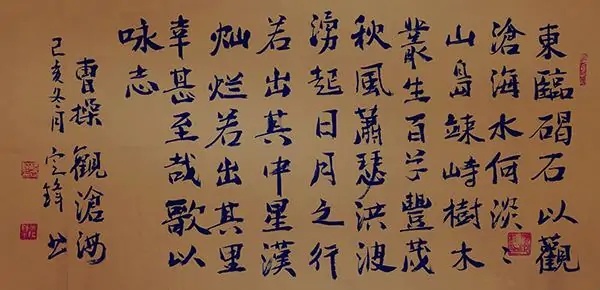 東臨碣石以觀
滄海水何淡〻
山島竦峙樹木
叢生百草豐茂
秋風蕭瑟洪波
湧起日月之行
若出其中星漢
灿烂若出其里
幸甚至哉歌以
咏志
曹操 觀滄海
己亥冬月 书